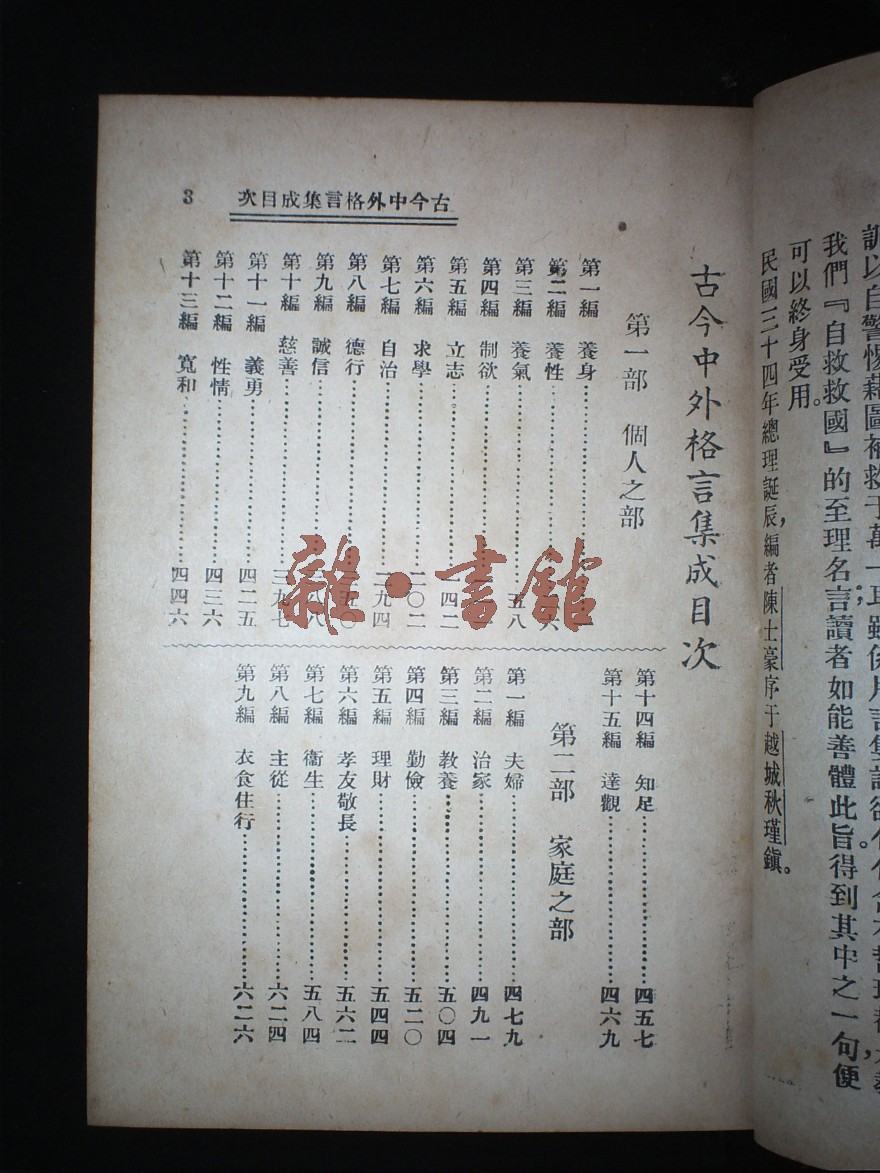 調以自警惕藉圖補救于萬一耳雖係片言隻語
我們『自救救國』的至理名言讀者如能善體此旨。得到其中之一句便
可以終身受用。
民國三十四年總理誕辰，編者陳士豪序于越城秋瑾鎭。
古今中外格言集成目次 3
古今中外格言集成目次
第一部 個人之部
第一編 養身
第二編 養性
第三編 養氣 五八
第四編 制欲
第五編 立志 一四二
第六編 求學 二〇二
第七編 自治 二九四
第八編 德行 三五〇
第九編 誠信 三八八
第十編 慈善 三九七
第十一編 義勇 四二五
第十二編 性情 四三六
第十三編 寬和 四四六
第十四編 知足 四五七
第十五編 達觀 四六九
第二部 家庭之部
第一編 夫婦 四七九
第二編 治家 四九一
第三編 教養 五〇四
第四編 勤儉 五二〇
第五編 理財 五四四
第六編 孝友敬長 五六二
第七編 衞生 五八四
第八編 主從 六二四
第九編 衣食住行 六二六
雜·書館